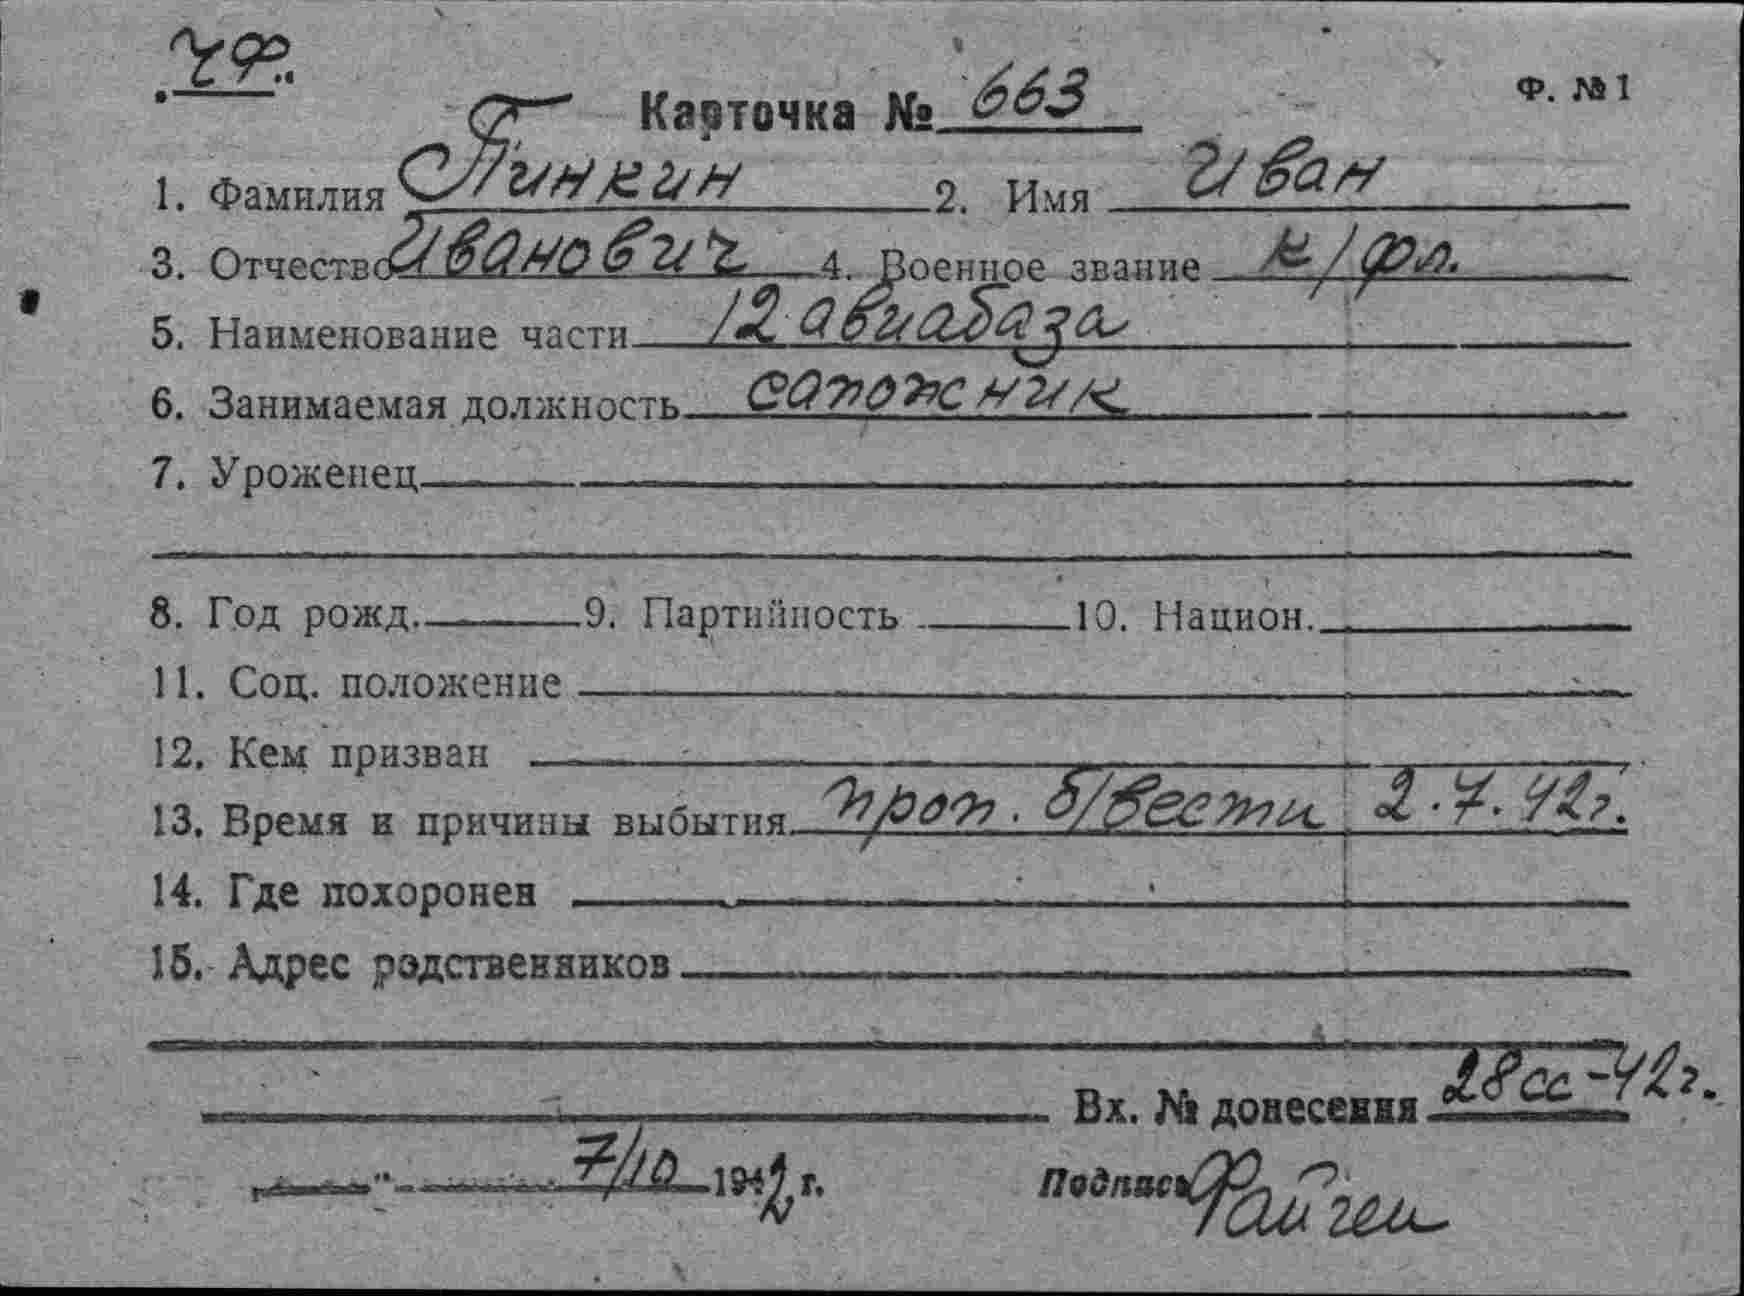 ЧФ.
Ф. №1
Карточка № 663
1. Фамилия Пинкин 2. Имя Иван
3. Отчество Иванович 4. Военное звание к/фл.
5. Наименование части 12 авиабаза
6. Занимаемая должность сапожник
7. Уроженец
8. Год рожд. 9. Партийность 10. Национ.
11. Соц. положение
12. Кем призван
13. Время и причины выбытия проп. б/вести 2.7.42г.
14. Где похоронен
15. Адрес родственников
Вх. № донесения 28сс-42г.
„ " 7/10 1942 г. Подпись